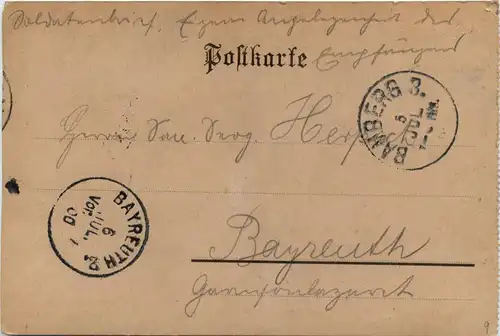 Soldatenbrief. Eigene Angelegenheit des
Empfängers
Postkarte
BAMBERG 3.
5
JUL
Herrn San. Serg.
BAYREUTH 2.
6
JUL.
Vor.
00
Bayreuth
Garnisonlazaret